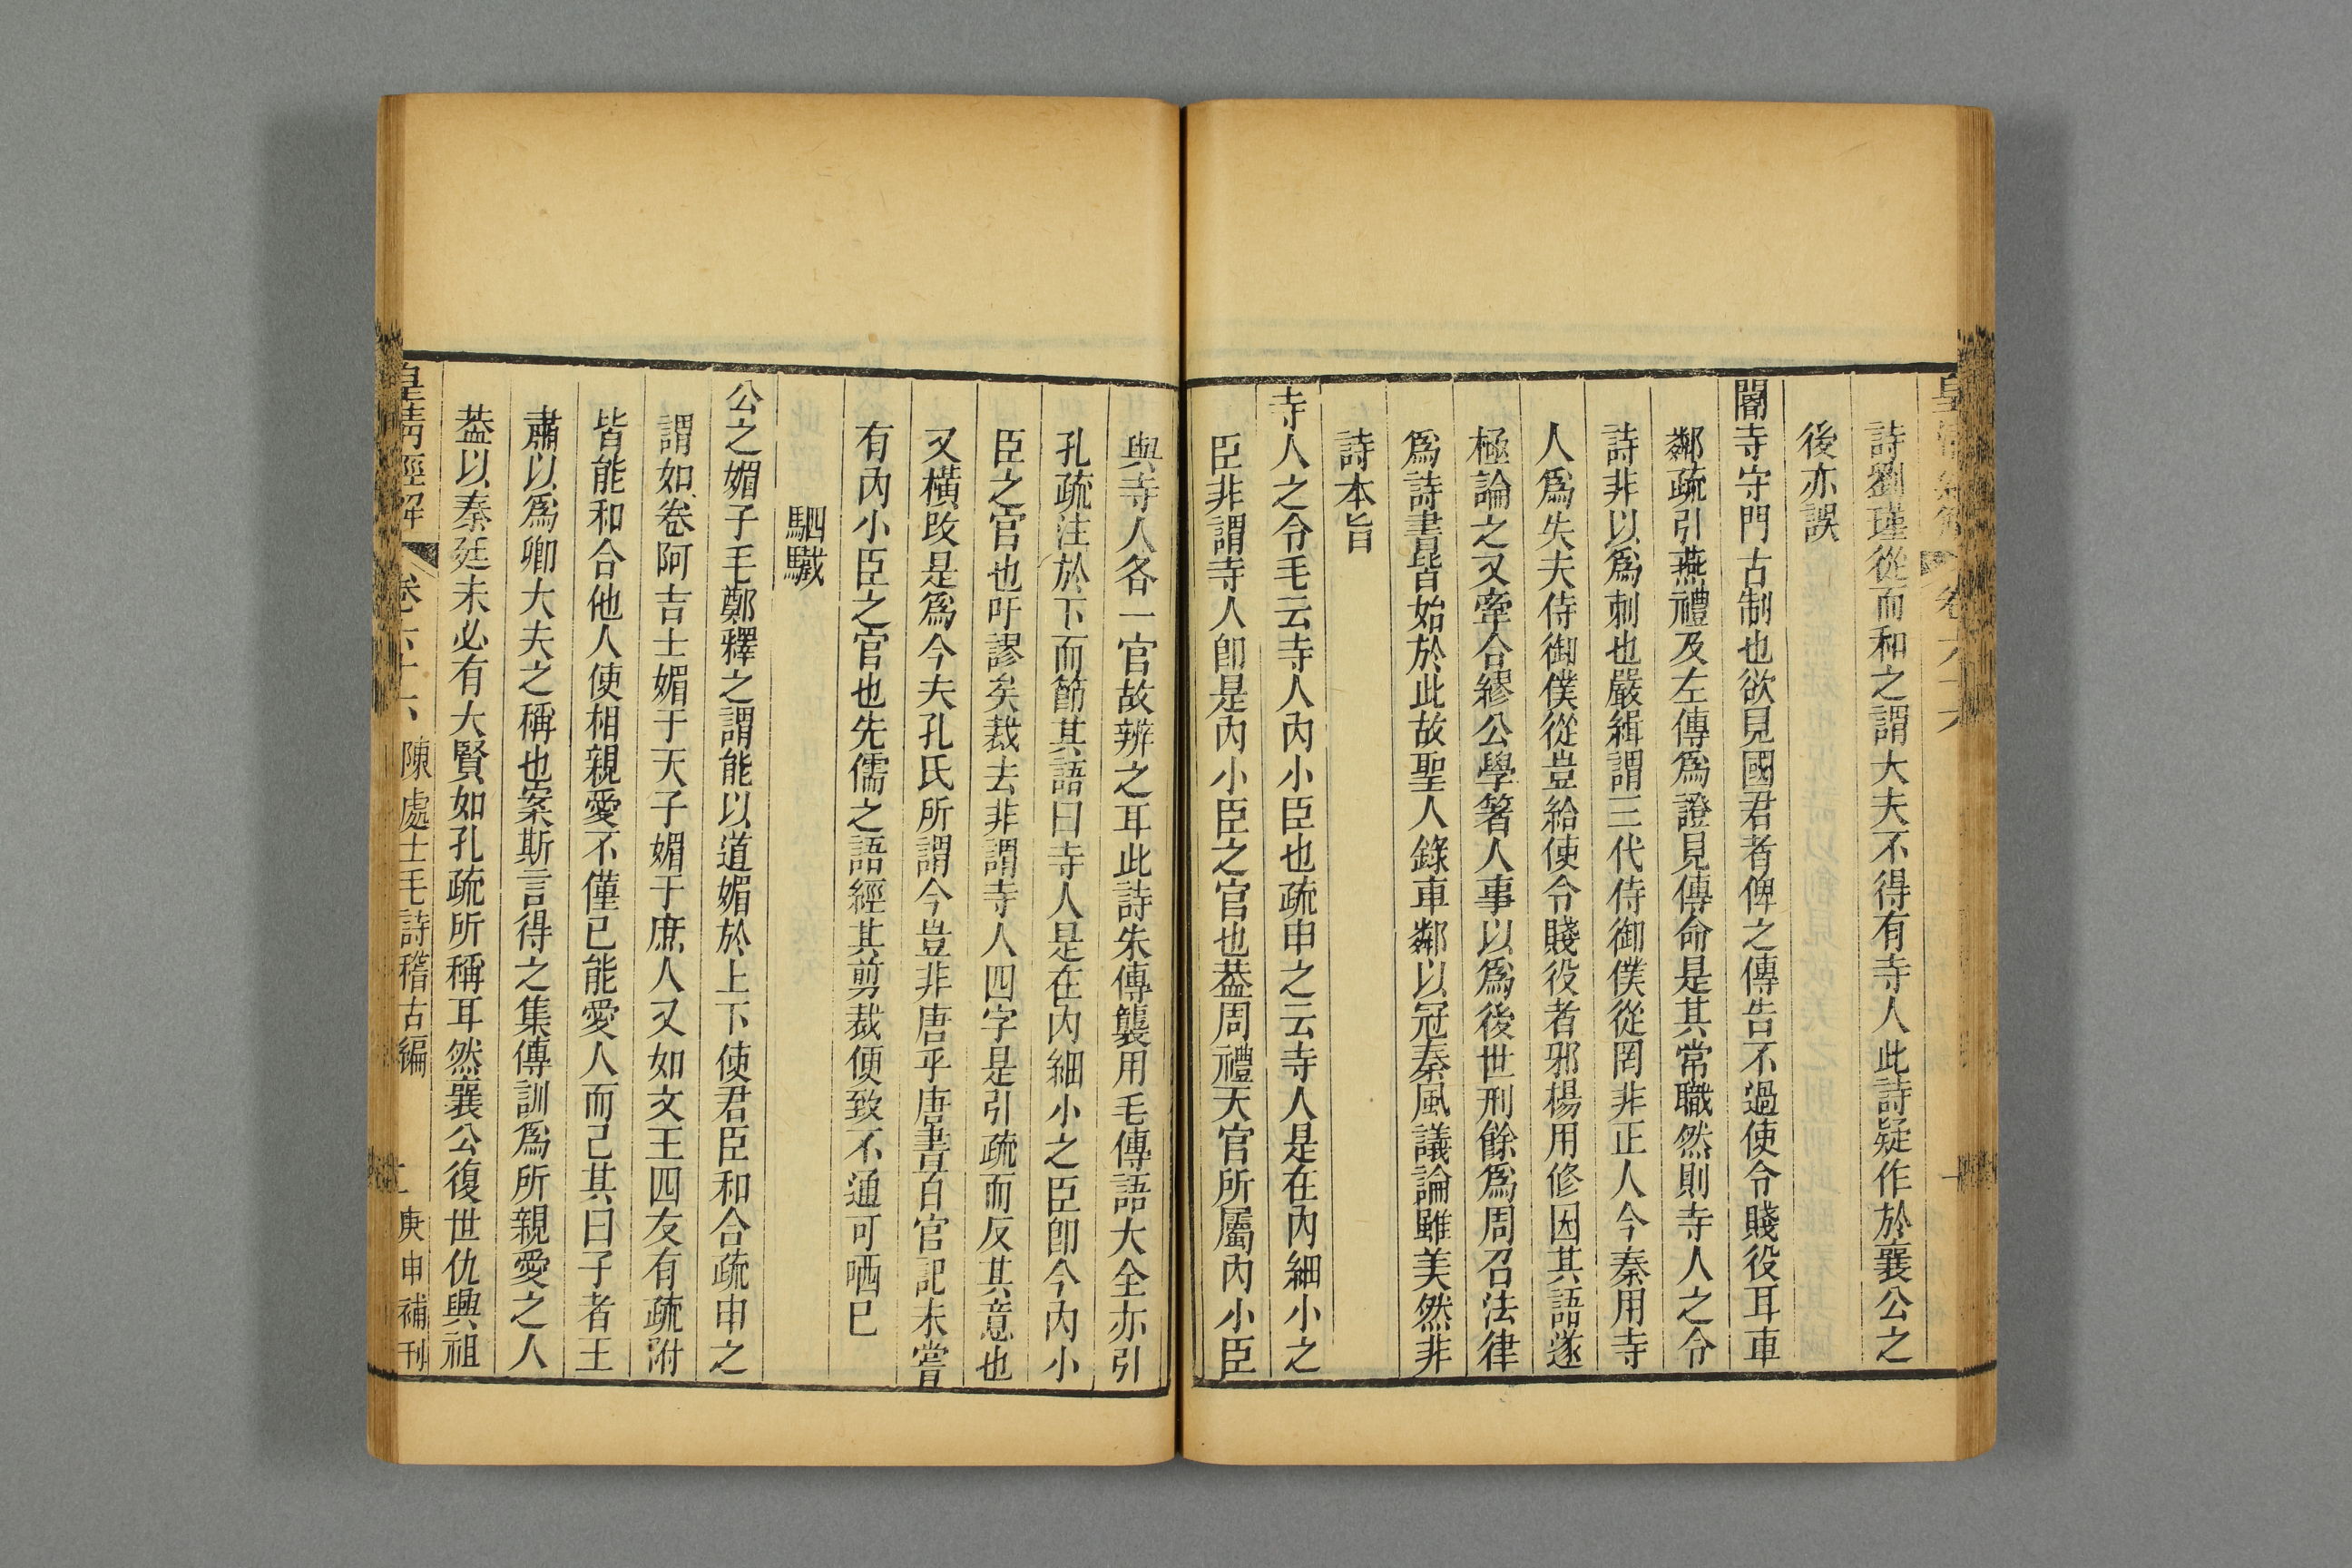 詩劉瑾從而和之謂大夫不得有寺人此詩疑作於襄公之
後亦誤
閽寺守門古制也欲見國君者俾之傳告不過使令賤役耳車
鄰疏引燕禮及左傳爲證見傳命是其常職然則寺人之令
詩非以爲刺也嚴緝謂三代侍御僕從罔非正人今秦用寺
人爲失夫侍御僕從豈給使令賤役者邪楊用修因其語遂
極論之又牽合繆公學箸人事以爲後世刑餘爲周召法律
爲詩書皆始於此故聖人錄車鄰以冠秦風議論雖美然非
詩本旨
寺人之令毛云寺人內小臣也疏申之云寺人是在內細小之
臣非謂寺人卽是內小臣之官也葢周禮天官所屬內小臣
與寺人各一官故辨之耳此詩朱傳襲用毛傳語大全亦引
孔疏注於下而節其語曰寺人是在內細小之臣卽今內小
臣之官也吁謬矣裁去非謂寺人四字是引疏而反其意也
又橫改是爲今夫孔氏所謂今豈非唐乎唐書百官記未嘗
有內小臣之官也先儒之語經其剪裁便致不通可哂已
駟驖
公之媚子毛鄭釋之謂能以道媚於上下使君臣和合疏申之
謂如卷阿吉士媚于天子媚于庶人又如文王四友有疏附
皆能和合他人使相親愛不僅已能愛人而己其曰子者王
肅以爲卿大夫之稱也案斯言得之集傳訓爲所親愛之人
葢以秦廷未必有大賢如孔疏所稱耳然襄公復世仇興祖
皇清經解 卷六十六 陳處士毛詩稽古編 庚申補刊